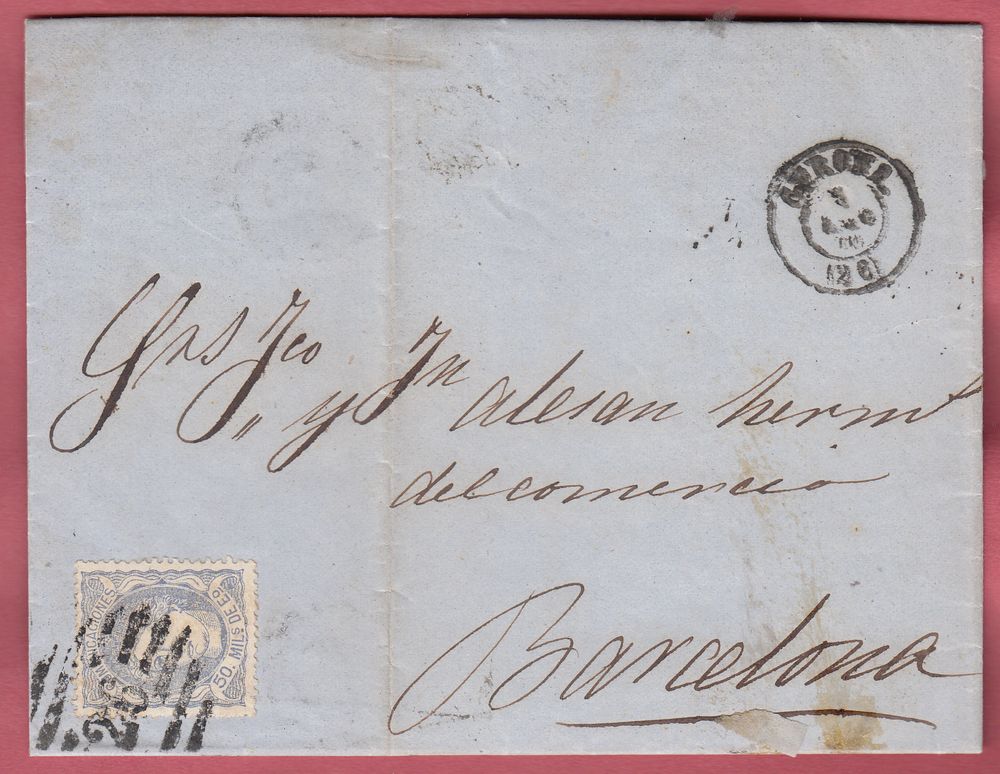 GERONA
3
AGO
(26)
Srs Fco
y Jn alesan herms
del comercio
Barcelona
COMUNICACIONES
50 MILS DE Eo